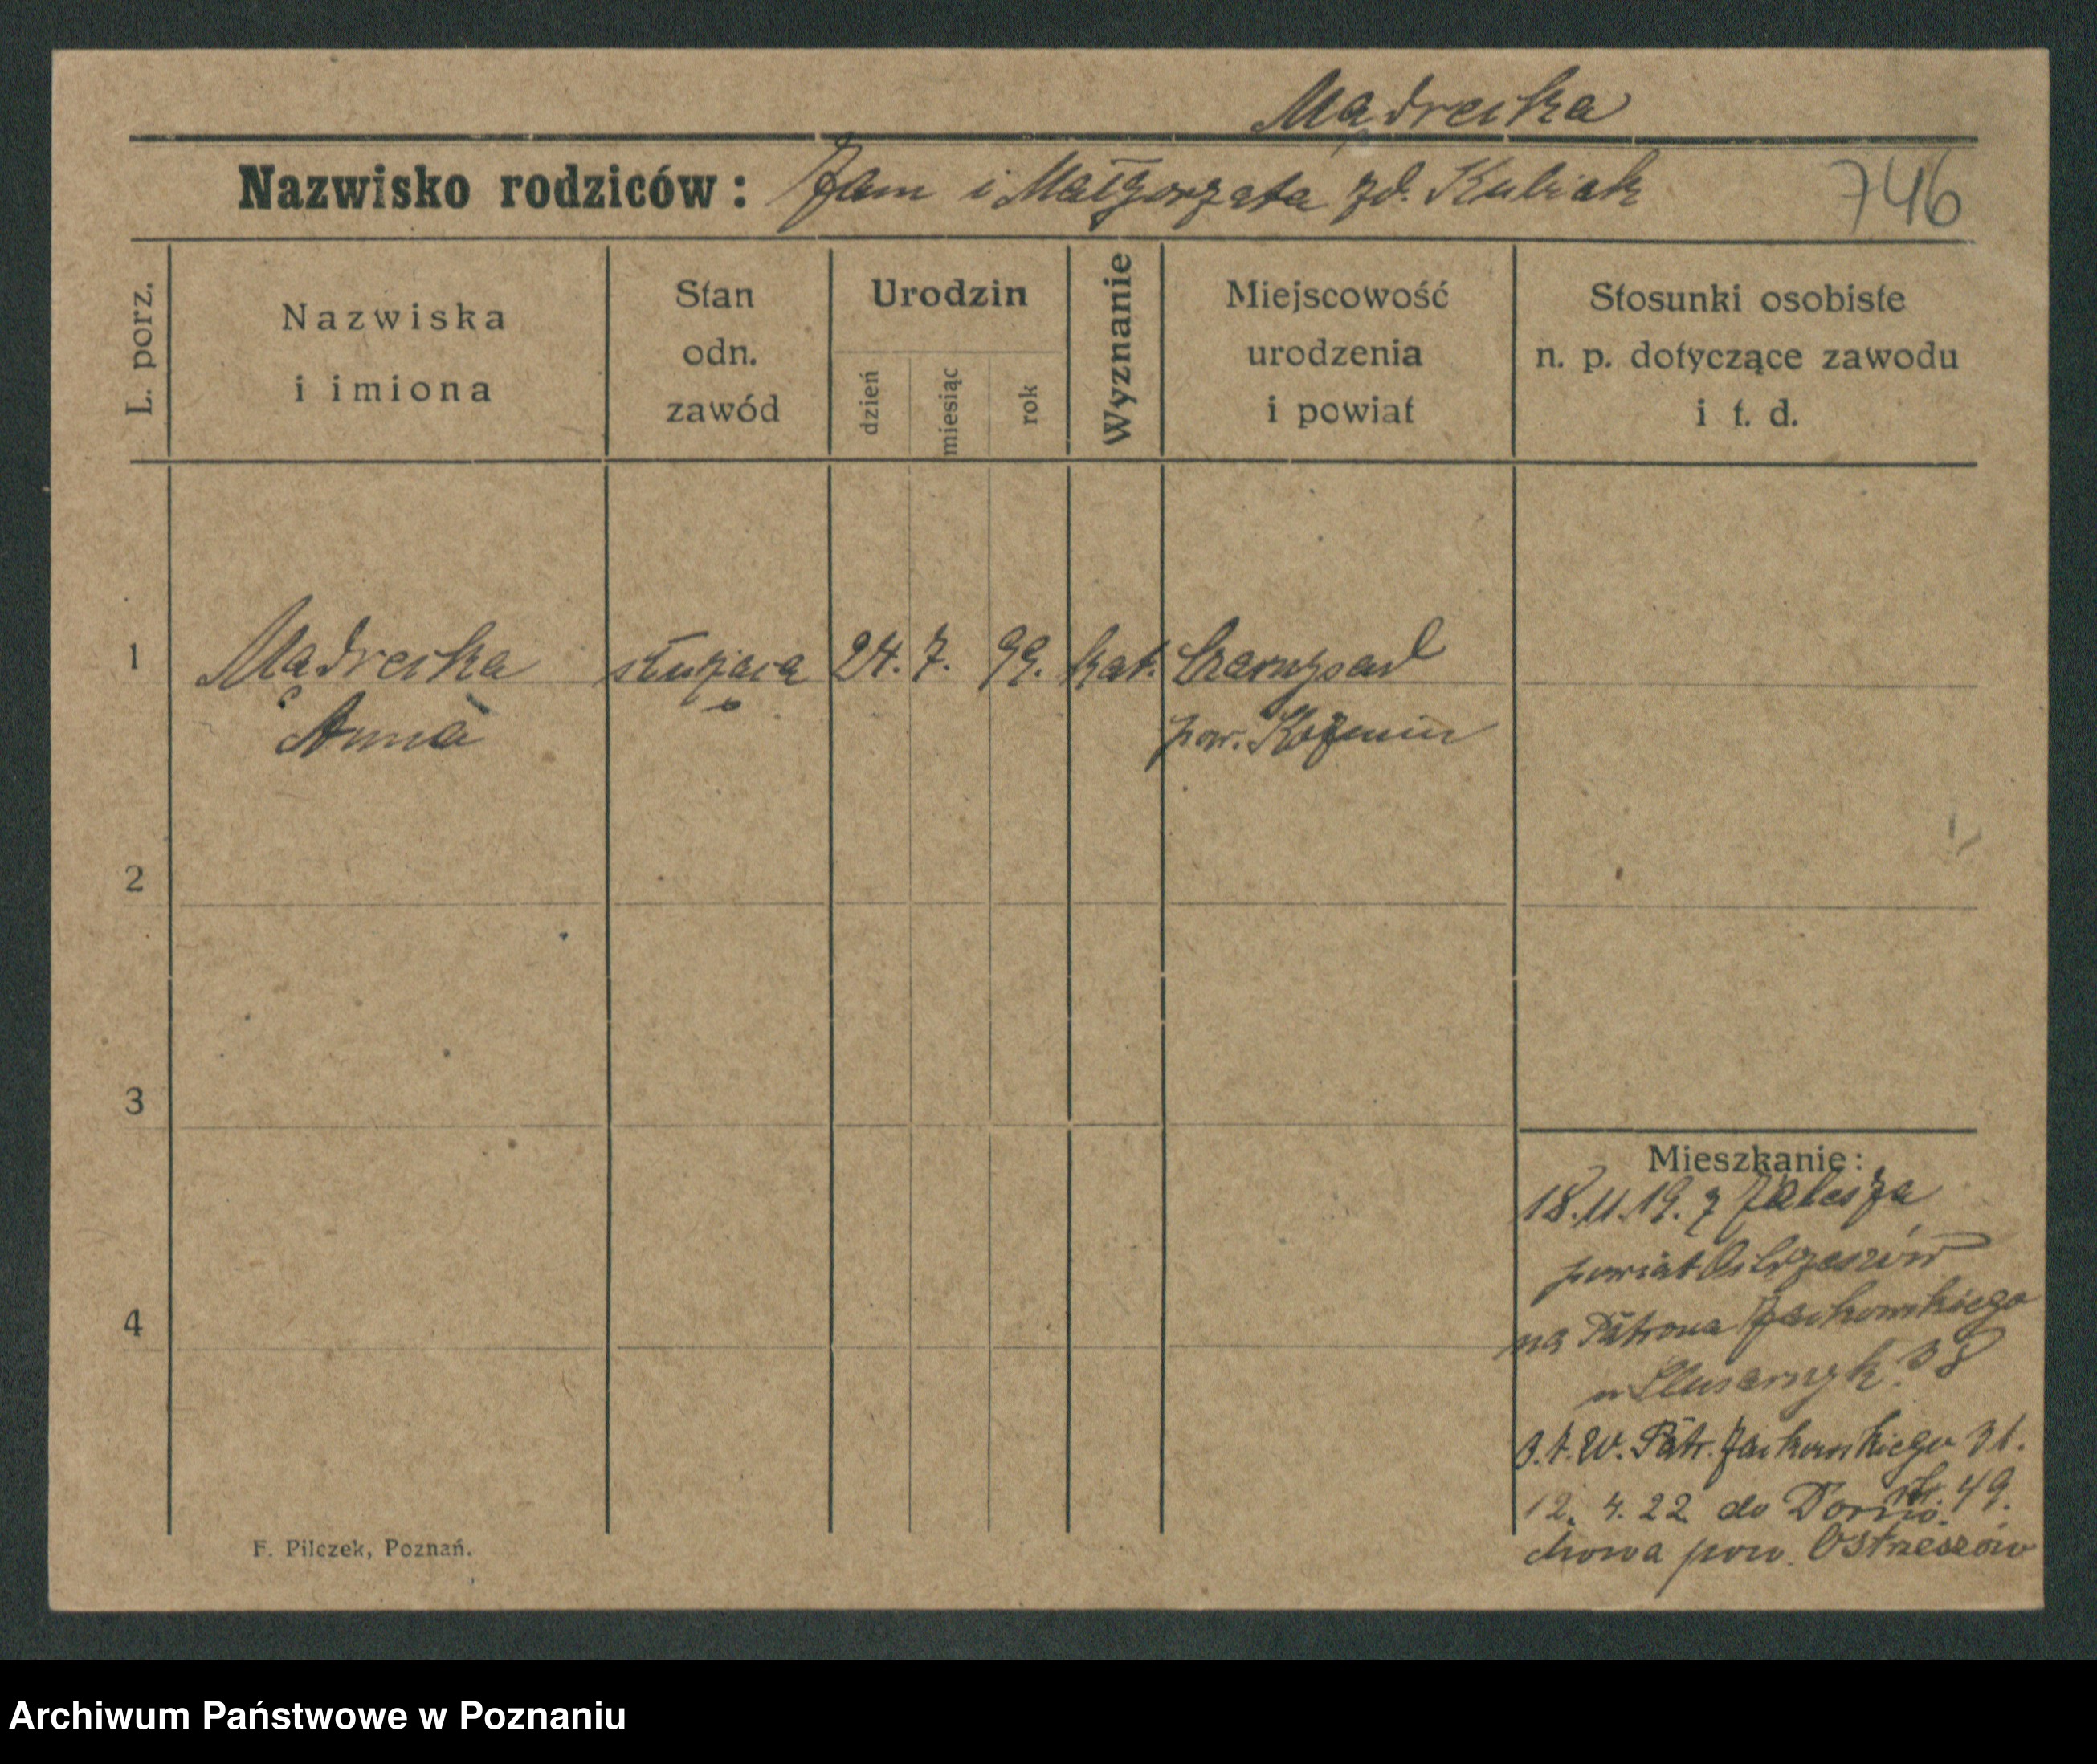 Mądrecka
Nazwisko rodziców: Jan i Małgorzata zd. Kubiak 746
L. porz.
Nazwiska i imiona
Stan odn. zawód
Urodzin
dzień miesiąc rok
Wyznanie
Miejscowość urodzenia i powiat
Stosunki osobiste n. p. dotyczące zawodu i t. d.
1 Mądrecka służąca 24. 7. 99. kat. Czarnysad
Anna pow. Koźmin
2
3
4
Mieszkanie:
18.11.19. z
powiat Ostrzeszów
na Patrona Jackowskiego
38
Patr. Jackowskiego 31.
12. 4. 22 do
chowa pow. Ostrzeszów
F. Pilczek, Poznań.
Archiwum Państwowe w Poznaniu